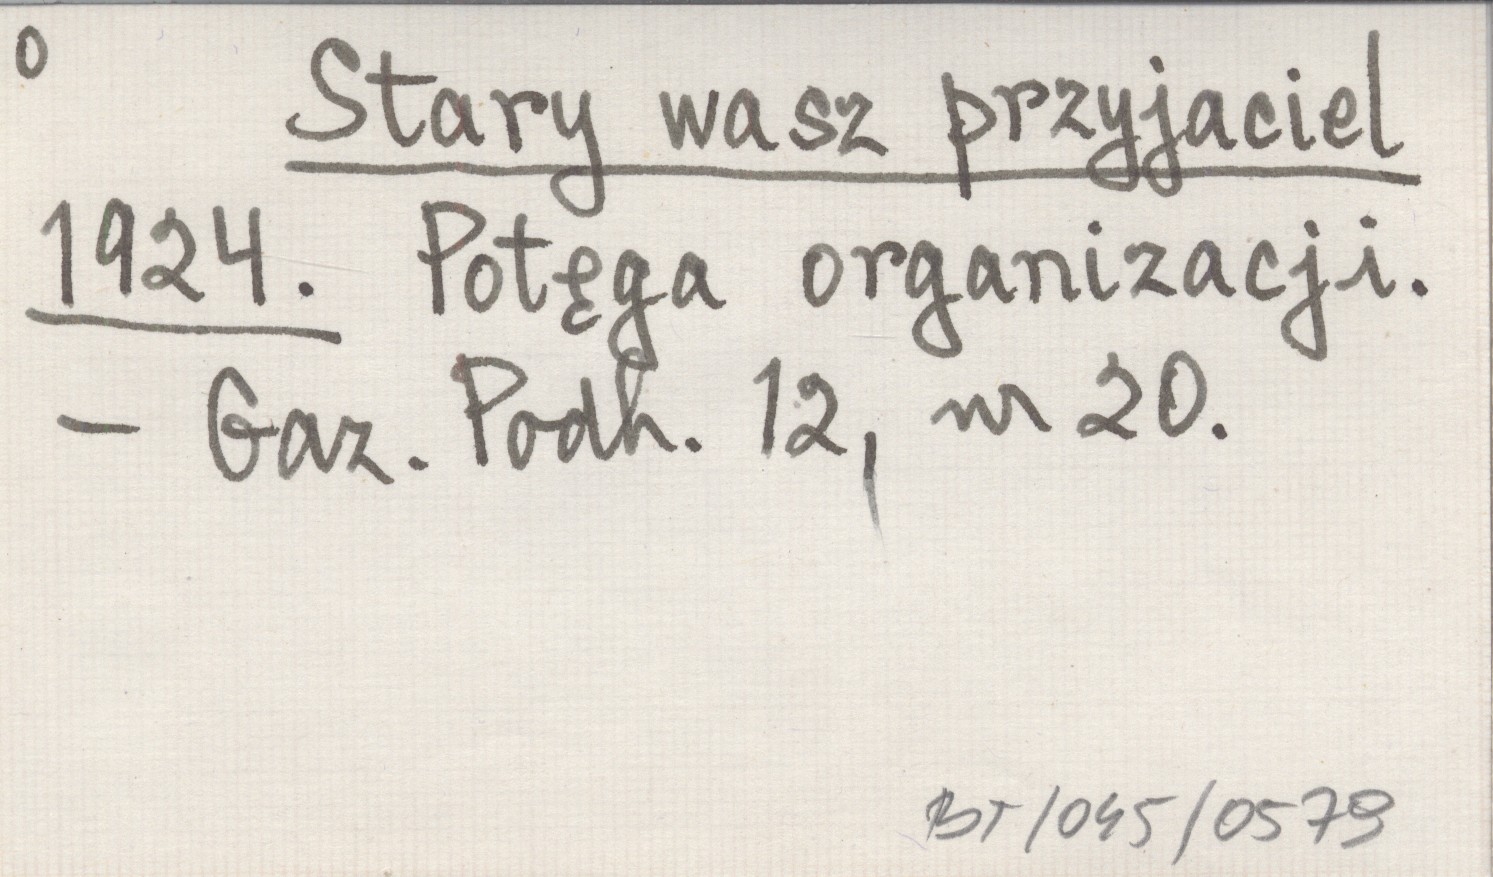 0
Stary wasz przyjaciel
1924. Potęga organizacji.
- Gaz. Podh. 12, nr 20.
BT/045/0579